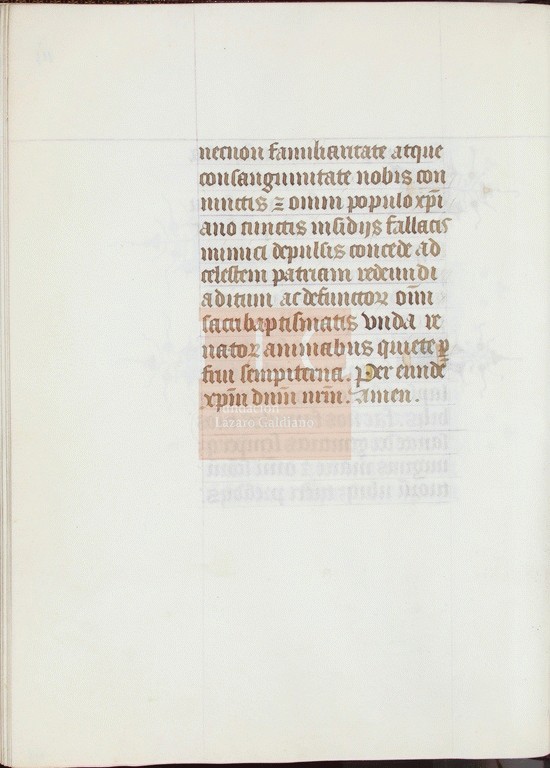 necnon familiaritate atque
consanguinitate nobis con
iunctis ⁊ omni populo xp̄i
ano cunctis insidijs fallacis
inimici depulsis concede ad
celestem patriam redeundi
aditum ac defunctoꝝ om̄i
sacri baptismatis unda re
natoꝝ animabus quiete ꝑ
frui sempiterna. Per eundē
xp̄m dn̄m nr̄m. Amen.
Fundación
Lázaro Galdiano